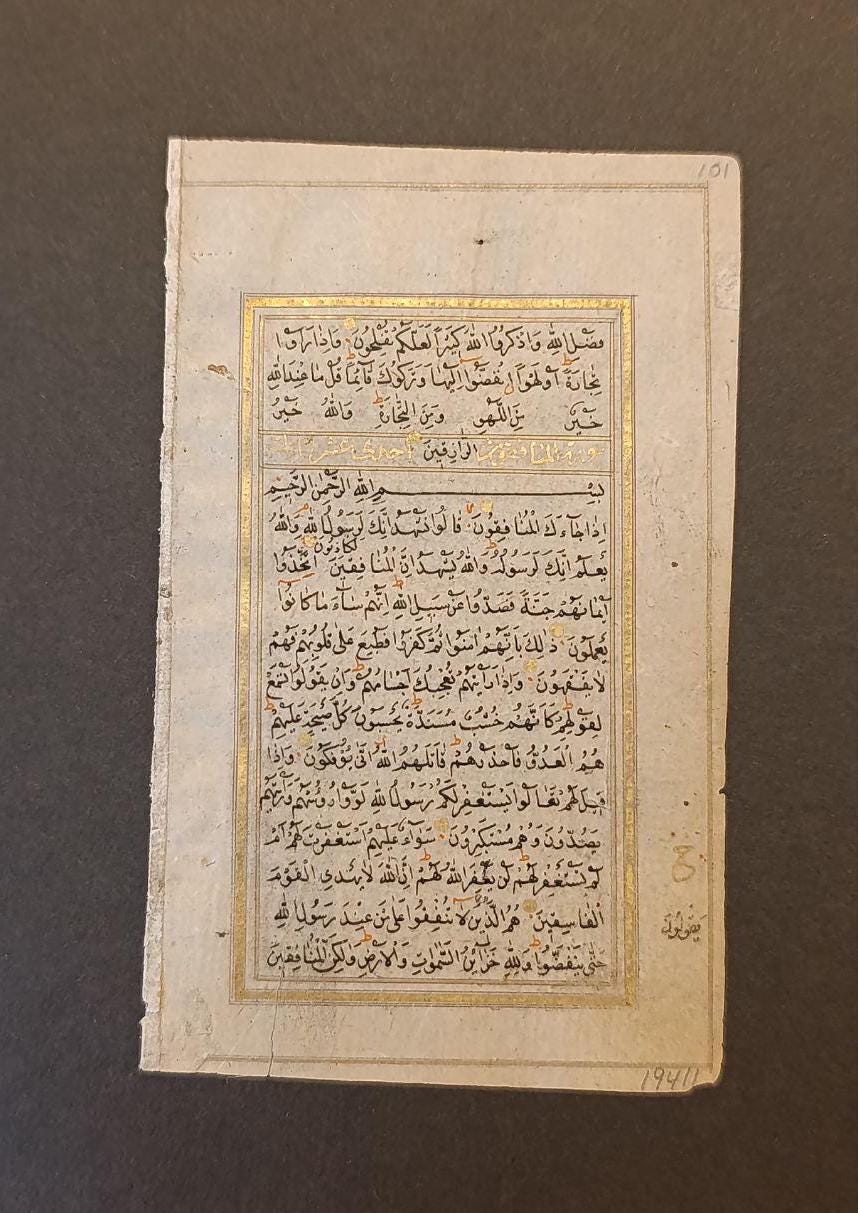 101
فَضْلِ اللّٰهِ وَاذْكُرُوا اللّٰهَ كَثِيرًا لَعَلَّكُمْ تُفْلِحُونَ وَاِذَا رَاَوْا
تِجَارَةً اَوْ لَهْوًا انْفَضُّوا اِلَيْهَا وَتَرَكُوكَ قَائِمًا قُلْ مَا عِنْدَ اللّٰهِ
خَيْرٌ مِنَ اللَّهْوِ وَمِنَ التِّجَارَةِ وَاللّٰهُ خَيْرُ
سورة المنافقون الرَّازِقِينَ احدى عشر
بِسْمِ اللّٰهِ الرَّحْمٰنِ الرَّحِيمِ
اِذَا جَاءَكَ الْمُنَافِقُونَ قَالُوا نَشْهَدُ اِنَّكَ لَرَسُولُ اللّٰهِ وَاللّٰهُ
يَعْلَمُ اِنَّكَ لَرَسُولُهُ وَاللّٰهُ يَشْهَدُ اِنَّ الْمُنَافِقِينَ لَكَاذِبُونَ اتَّخَذُوا
اَيْمَانَهُمْ جُنَّةً فَصَدُّوا عَنْ سَبِيلِ اللّٰهِ اِنَّهُمْ سَاءَ مَا كَانُوا
يَعْمَلُونَ ذٰلِكَ بِاَنَّهُمْ اٰمَنُوا ثُمَّ كَفَرُوا فَطُبِعَ عَلٰى قُلُوبِهِمْ فَهُمْ
لَا يَفْقَهُونَ وَاِذَا رَاَيْتَهُمْ تُعْجِبُكَ اَجْسَامُهُمْ وَاِنْ يَقُولُوا تَسْمَعْ
لِقَوْلِهِمْ كَاَنَّهُمْ خُشُبٌ مُسَنَّدَةٌ يَحْسَبُونَ كُلَّ صَيْحَةٍ عَلَيْهِمْ
هُمُ الْعَدُوُّ فَاحْذَرْهُمْ قَاتَلَهُمُ اللّٰهُ اَنّٰى يُؤْفَكُونَ وَاِذَا
قِيلَ لَهُمْ تَعَالَوْا يَسْتَغْفِرْ لَكُمْ رَسُولُ اللّٰهِ لَوَّوْا رُؤُسَهُمْ وَرَاَيْتَهُمْ
يَصُدُّونَ وَهُمْ مُسْتَكْبِرُونَ سَوَاءٌ عَلَيْهِمْ اَسْتَغْفَرْتَ لَهُمْ اَمْ
لَمْ تَسْتَغْفِرْ لَهُمْ لَنْ يَغْفِرَ اللّٰهُ لَهُمْ اِنَّ اللّٰهَ لَا يَهْدِى الْقَوْمَ
الْفَاسِقِينَ هُمُ الَّذِينَ يَقُولُونَ لَا تُنْفِقُوا عَلٰى مَنْ عِنْدَ رَسُولِ اللّٰهِ
حَتّٰى يَنْفَضُّوا وَلِلّٰهِ خَزَائِنُ السَّمٰوَاتِ وَالْاَرْضِ وَلٰكِنَّ الْمُنَافِقِينَ
19411